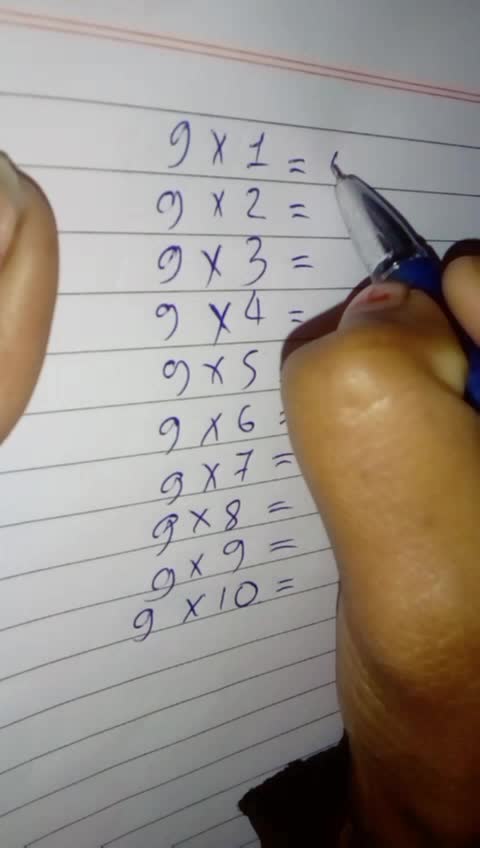 9 × 1 =
9 × 2 =
9 × 3 =
9 × 4 =
9 × 5
9 × 6 =
9 × 7 =
9 × 8 =
9 × 9 =
9 × 10 =